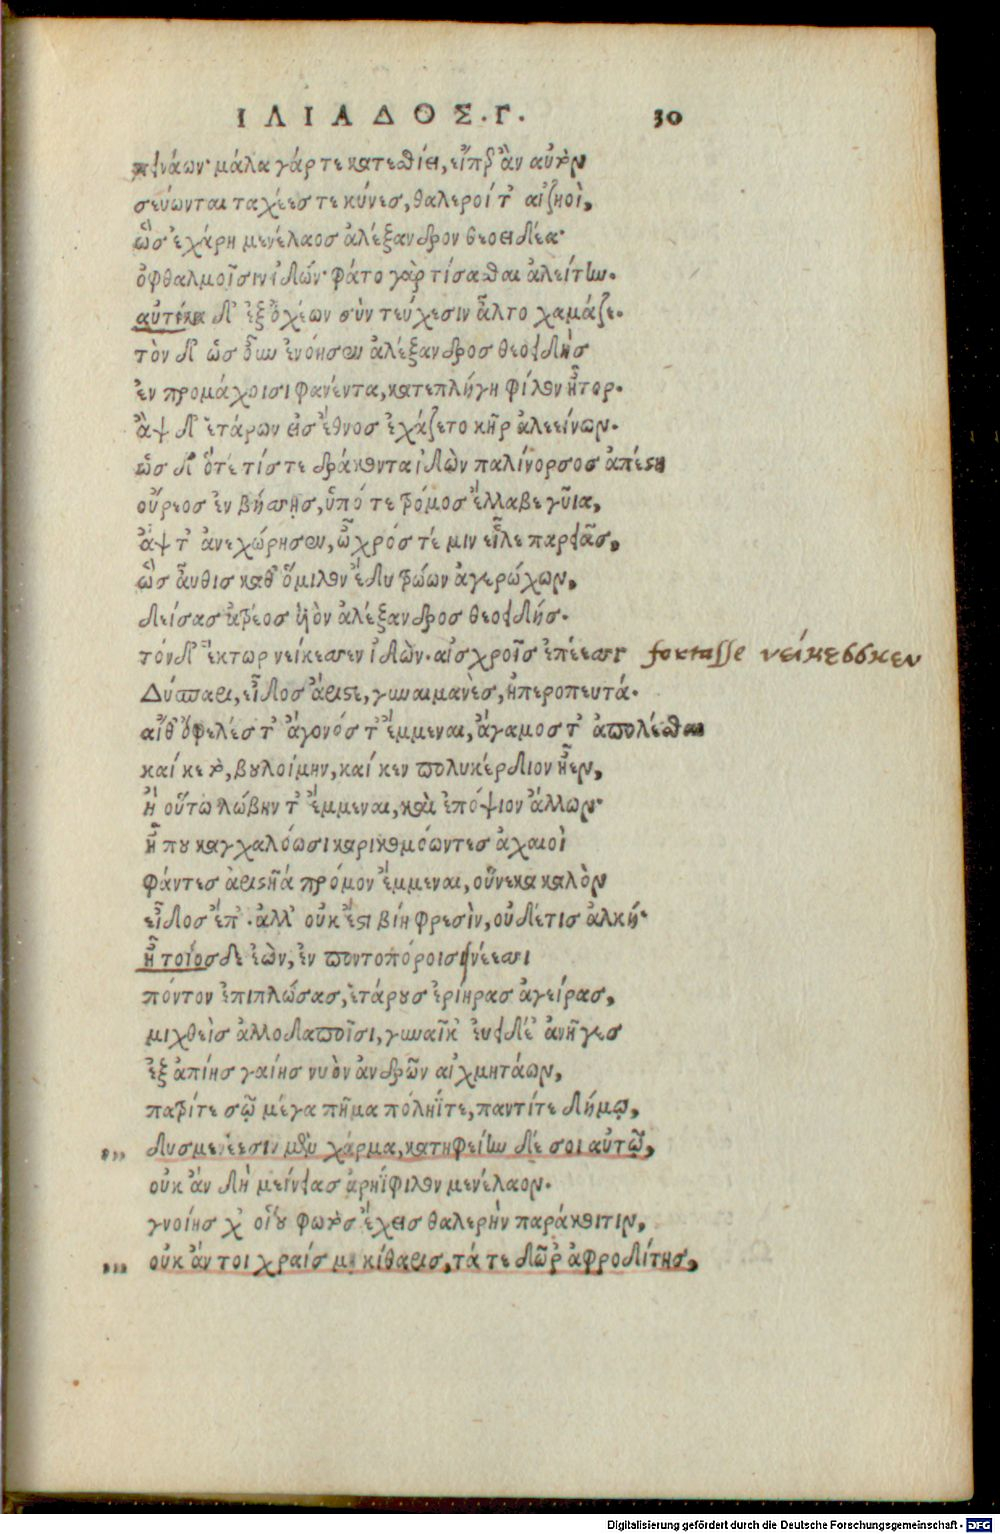 ΙΛΙΑΔΟΣ.Γ. 30
πεινάων· μάλα γάρ τε κατεσθίει, εἴπερ ἂν αὐτὸν
σεύωνται ταχέες τε κύνες, θαλεροί τ' αἰζηοὶ,
ὣς ἐχάρη μενέλαος ἀλέξανδρον θεοειδέα·
ὀφθαλμοῖσιν ἰδών· φάτο γὰρ τίσασθαι ἀλείτην.
αὐτίκα δ' ἐξ ὀχέων σὺν τεύχεσιν ἆλτο χαμάζε.
τὸν δ' ὡς οὖν ἐνόησεν ἀλέξανδρος θεοειδὴς
ἐν προμάχοισι φανέντα, κατεπλήγη φίλον ἦτορ.
ἂψ δ' ἑτάρων εἰς ἔθνος ἐχάζετο κῆρ ἀλεείνων.
ὡς δ' ὅτέ τίς τε δράκοντα ἰδὼν παλίνορσος ἀπέστη
οὔρεος ἐν βήσσης, ὑπό τε τρόμος ἔλλαβε γῦια,
ἄψ τ' ἀνεχώρησεν, ὦχρός τέ μιν εἷλε παρειᾶς,
ὣς αὖθις καθ' ὅμιλον ἔδυ τρώων ἀγερώχων,
δείσας ἀτρέος υἱὸν ἀλέξανδρος θεοειδής.
τόν δ' ἕκτωρ νείκεσσεν ἰδὼν. αἰσχροῖς ἐπέεσσι fortasse νείκεσσκεν
Δύσπαρι, εἶδος ἄριστε, γυναιμανὲς, ἠπεροπευτά.
αἴθ' ὄφελές τ' ἄγονός τ' ἔμμεναι, ἄγαμος τ' ἀπολέσθαι
καί κε τὸ, βουλοίμην, καί κεν πολυκέρδιον ἦεν,
ἢ οὕτω λώβην τ' ἔμμεναι, καὶ ἐπόψιον ἄλλων·
ἦ που καγχαλόωσι καρικομόωντες ἀχαιοὶ
φάντες ἀριστῆα πρόμον ἔμμεναι, οὕνεκα καλὸν
εἶδος ἔπ'. ἀλλ' οὐκ ἔστι βίη φρεσὶν, οὐδέ τις ἀλκή·
ἦ τοιόσδε ἐὼν, ἐν ποντοπόροισι νέεσσι
πόντον ἐπιπλώσας, ἑτάρους ἐρίηρας ἀγείρας,
μιχθεὶς ἀλλοδαποῖσι, γυναῖκ' ἐυειδέ' ἀνῆγες
ἐξ ἀπίης γαίης νυὸν ἀνδρῶν αἰχμητάων,
πατρί τε σῷ μέγα πῆμα πόληΐ τε, παντί τε δήμῳ,
„„ δυσμενέεσιν μὲν χάρμα, κατηφείην δέ σοι αὐτῷ,
οὐκ ἂν δὴ μείνειας ἀρηΐφιλον μενέλαον.
γνοίης χ' οἵου φωτὸς ἔχεις θαλερὴν παράκοιτιν,
„„ οὐκ ἄν τοι χραίσμῃ κίθαρις, τά τε δῶρ' ἀφροδίτης,
Digitalisierung gefördert durch die Deutsche Forschungsgemeinschaft - DFG